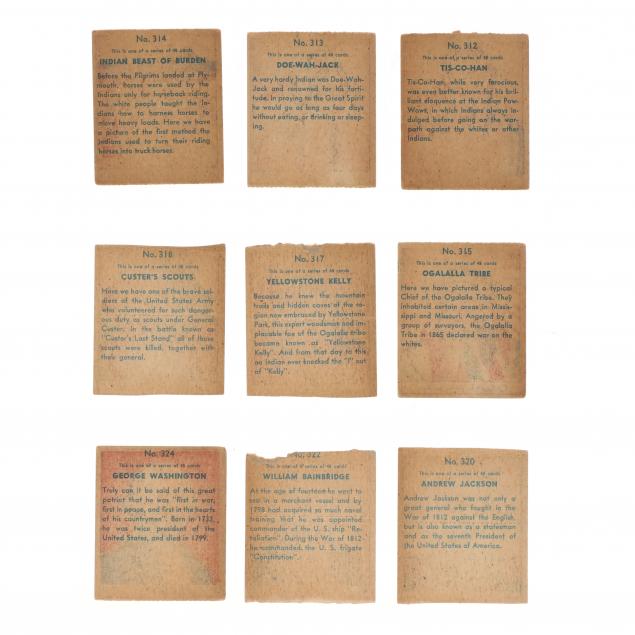 No. 314
This is one of a series of 48 cards
INDIAN BEAST OF BURDEN
Before the Pilgrims landed at Ply-
mouth, horses were used by the
Indians only for horseback riding.
The white people taught the In-
dians how to harness horses to
move heavy loads. Here we have
a picture of the first method the
Indians used to turn their riding
horses into truck horses.
No. 313
This is one of a series of 48 cards
DOE-WAH-JACK
A very hardy Indian was Doe-Wah-
Jack and renowned for his forti-
tude. In praying to the Great Spirit
he would go as long as four days
without eating, or drinking or sleep-
ing.
No. 312
This is one of a series of 48 cards
TIS-CO-HAN
Tis-Co-Han, while very ferocious,
was even better known for his bril-
liant eloquence at the Indian Pow-
Wows, in which Indians always in-
dulged before going on the war-
path against the whites or other
Indians.
No. 316
This is one of a series of 48 cards
CUSTER'S SCOUTS
Here we have one of the brave sol-
diers of the United States Army
who volunteered for such danger-
ous duty as scouts under General
Custer. In the battle known as
"Custer's Last Stand" all of those
scouts were killed, together with
their general.
No. 317
This is one of a series of 48 cards
YELLOWSTONE KELLY
Because he knew the mountain
trails and hidden caves of the re-
gion now embraced by Yellowstone
Park, this expert woodsman and im-
placable foe of the Ogalalla tribe
became known as "Yellowstone
Kelly". And from that day to this
no Indian ever knocked the "l" out
of "Kelly".
No. 315
This is one of a series of 48 cards
OGALALLA TRIBE
Here we have pictured a typical
Chief of the Ogalalla Tribe. They
inhabited certain areas in Missis-
sippi and Missouri. Angered by a
group of surveyors, the Ogalalla
Tribe in 1865 declared war on the
whites.
No. 324
This is one of a series of 48 cards
GEORGE WASHINGTON
Truly can it be said of this great
patriot that he was "first in war,
first in peace, and first in the hearts
of his countrymen". Born in 1732,
he was twice president of the
United States, and died in 1799.
No. 322
This is one of a series of 48 cards
WILLIAM BAINBRIDGE
At the age of fourteen he went to
sea in a merchant vessel and by
1798 had acquired so much naval
training that he was appointed
commander of the U. S. ship "Re-
taliation". During the War of 1812
he commanded, the U. S. frigate
"Constitution".
No. 320
This is one of a series of 48 cards
ANDREW JACKSON
Andrew Jackson was not only a
great general who fought in the
War of 1812 against the English,
but is also known as a statesman
and as the seventh President of
the United States of America.